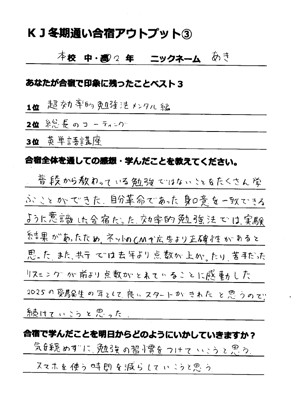 KJ冬期通い合宿アウトプット③
本校 中・高 2 年 ニックネーム あき
あなたが合宿で印象に残ったことベスト3
1位 超効率的勉強法メンタル編
2位 総長のコーティング
3位 英単語講座
合宿全体を通しての感想・学んだことを教えてください。
普段から教わっている勉強ではないことをたくさん学
ぶことができた。自分革命であった身口意を一致できる
ように意識した合宿だった。効率的勉強法では実験
結果があったため、ネットのCMや広告より正確性があると
思った。また、共テでは去年より点数が上がったり、苦手だった
リスニングが前より点数がとれていることに感動した
2025の受験生の年として良いスタートがきれたと思うので
続けていこうと思った。
合宿で学んだことを明日からどのようにいかしていきますか?
気を緩めずに、勉強の習慣をつけていこうと思う。
スマホを使う時間を減らしていこうと思う